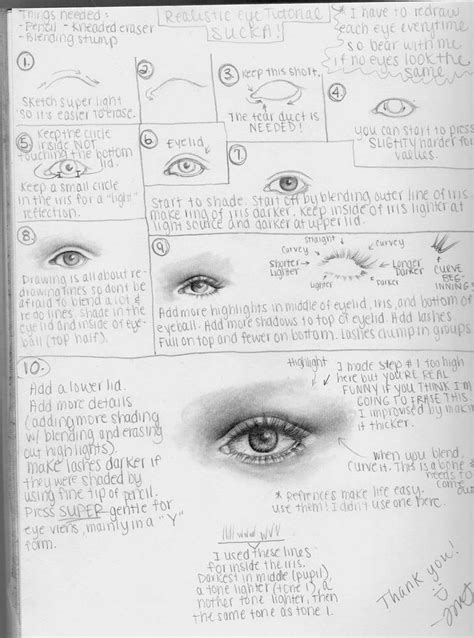 Things needed:
- Pencil - Kneaded eraser
- Blending stump
Realistic eye Tutorial
sucka!
* I have to redraw
each eye everytime
so bear with me
if no eyes look the
same
1.
Sketch super light
so it's easier to erase.
2.
3. Keep this short.
The tear duct is
NEEDED!
4.
you can start to press
SLIGHTLY harder for
values.
5. Keep the circle
inside NOT
touching the bottom
lid.
Keep a small circle
in the iris for a "light"
reflection.
6. Eyelid
7.
Start to shade. Start off by blending outer line of iris
make ring of iris darker. Keep inside of iris lighter at
light source and darker at upper lid.
8.
Drawing is all about re-
drawing lines so dont be
afraid to blend a lot &
re do lines. Shade in the
eyelid and inside of eye-
ball (top half).
9.
straight
curvey
curvey
shorter
lighter
longer
darker
lighter
darker
CURVE
BEG-
INNING!
Add more highlights in middle of eyelid, iris, and bottom of
eyeball. Add more shadows to top of eyelid. Add lashes
Full on top and fewer on bottom. Lashes clump in groups.
10.
Add a lower lid.
Add more details
(adding more shading
w/ blending and erasing
out highlights).
make lashes darker if
they were shaded by
using fine tip of pencil.
Press SUPER gentle for
eye viens, mainly in a "Y"
form.
Highlight
I made step #1 too high
here but you're REAL
FUNNY IF YOU THINK I'M
GOING TO ERASE THIS.
I improvised by
it thicker.
when you blend,
curve it. This is bone &
needs to
come
out
* Refrences make life easy.
use them! I didn't use one here.
I used these lines
for inside the iris.
Darkest in middle (pupil)
a tone lighter (tone 1), a
nother tone lighter, then
the same tone as tone 1.
Thank you!